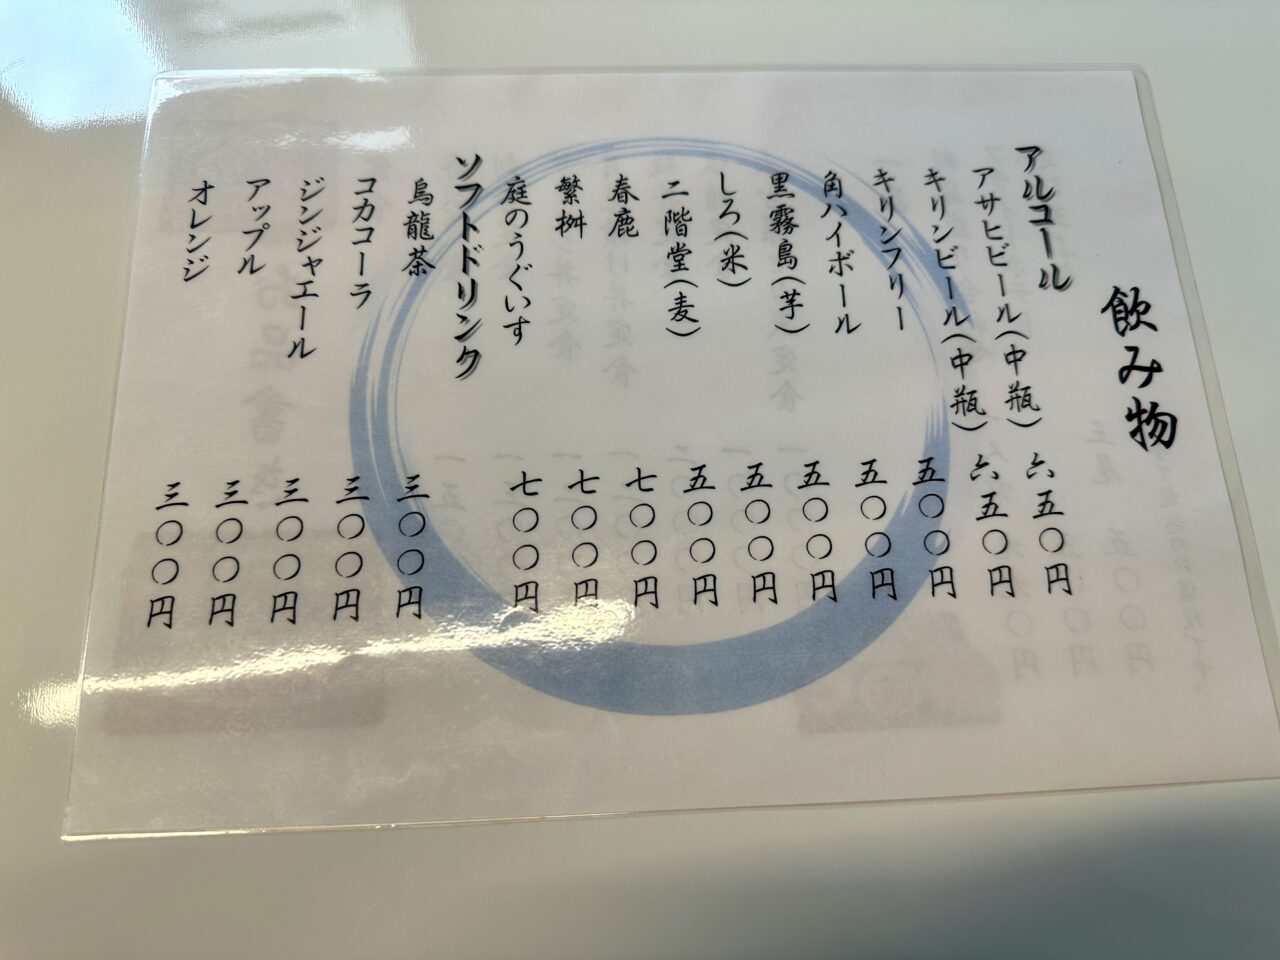 飲み物
アルコール
アサヒビール(中瓶) 六五〇円
キリンビール(中瓶) 六五〇円
キリンフリー 五〇〇円
角ハイボール 五〇〇円
黒霧島(芋) 五〇〇円
しろ(米) 五〇〇円
二階堂(麦) 五〇〇円
春鹿 七〇〇円
繁桝 七〇〇円
庭のうぐいす 七〇〇円
ソフトドリンク
烏龍茶 三〇〇円
コカコーラ 三〇〇円
ジンジャエール 三〇〇円
アップル 三〇〇円
オレンジ 三〇〇円